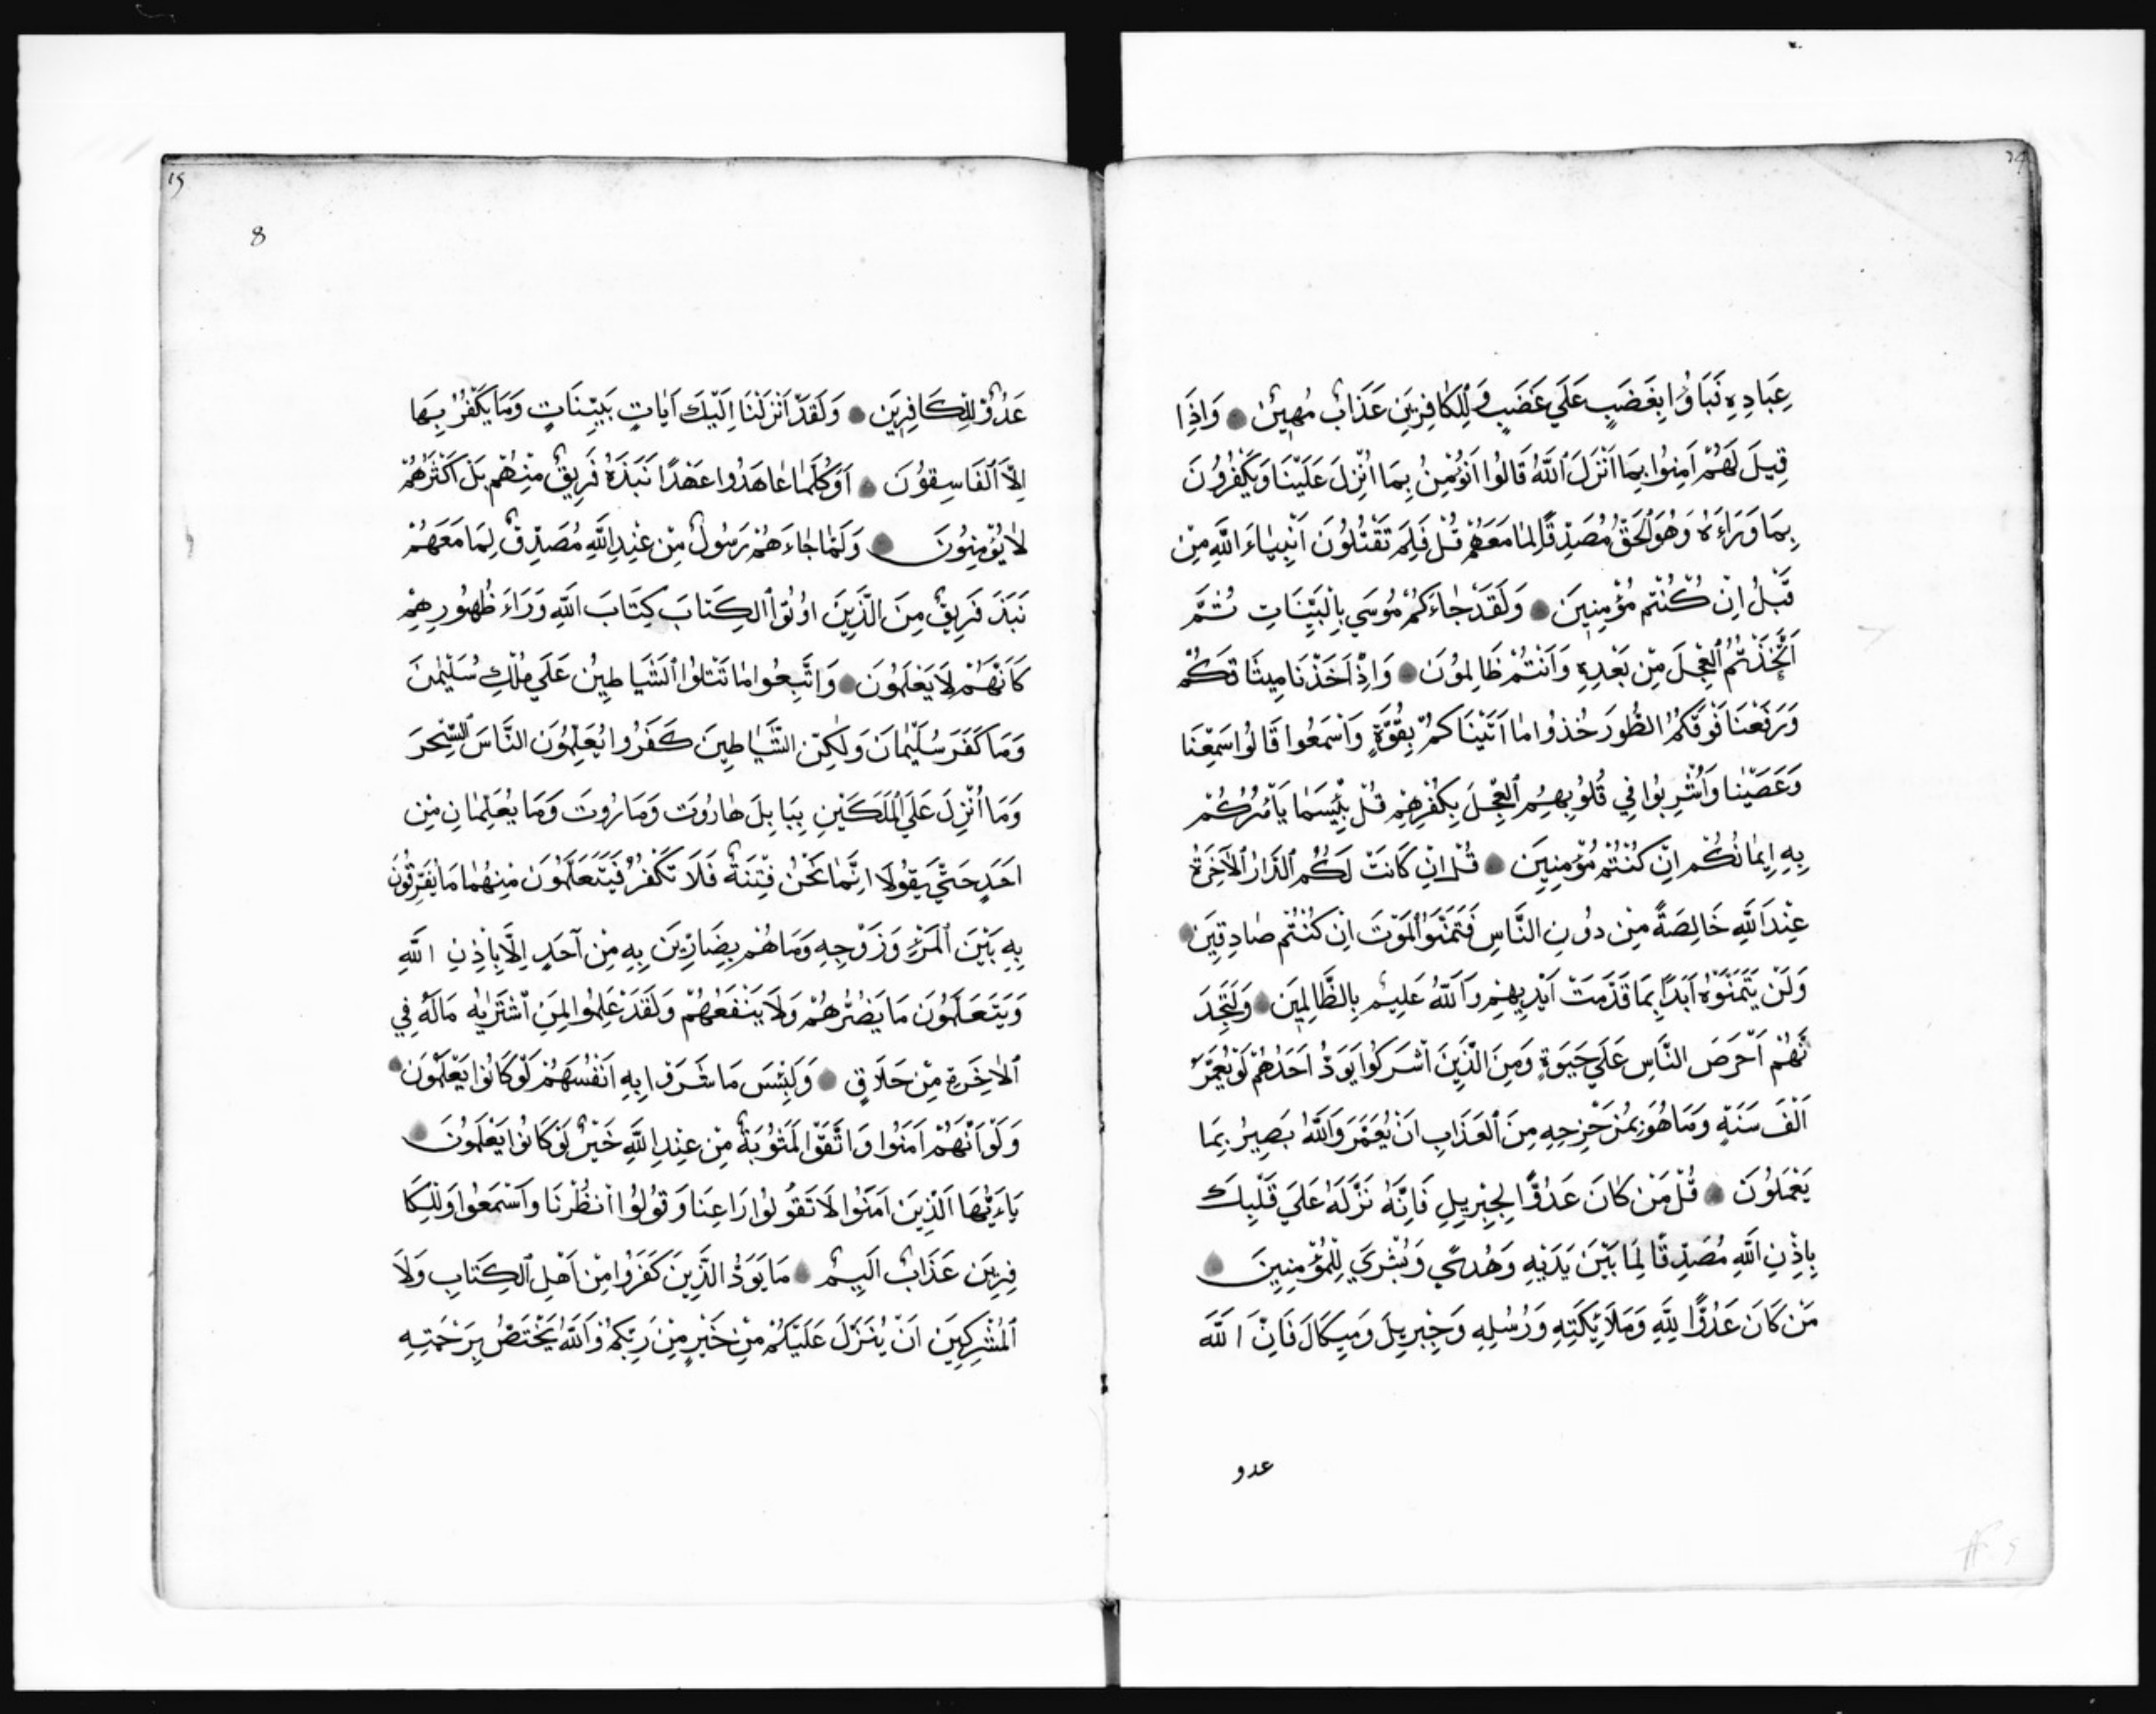 عِبَادِهِ فَبَاؤُا بِغَضَبٍ عَلَي غَضَبٍ وَلِلْكَافِرِينَ عَذَابٌ مُهِينٌ وَاِذَا
قِيلَ لَهُمْ اٰمِنُوا بِمَا اَنْزَلَ اللّٰهُ قَالُوا نُؤْمِنُ بِمَا اُنْزِلَ عَلَيْنَا وَيَكْفُرُونَ
بِمَا وَرَاءَهُ وَهُوَ الْحَقُّ مُصَدِّقًا لِمَا مَعَهُمْ قُلْ فَلِمَ تَقْتُلُونَ اَنْبِيَاءَ اللّٰهِ مِنْ
قَبْلُ اِنْ كُنْتُمْ مُؤْمِنِينَ وَلَقَدْ جَاءَكُمْ مُوسَي بِالْبَيِّنَاتِ ثُمَّ
اتَّخَذْتُمُ الْعِجْلَ مِنْ بَعْدِهِ وَاَنْتُمْ ظَالِمُونَ وَاِذْ اَخَذْنَا مِيثَاقَكُمْ
وَرَفَعْنَا فَوْقَكُمُ الطُّورَ خُذُوا مَا اٰتَيْنَاكُمْ بِقُوَّةٍ وَاسْمَعُوا قَالُوا سَمِعْنَا
وَعَصَيْنَا وَاُشْرِبُوا فِي قُلُوبِهِمُ الْعِجْلَ بِكُفْرِهِمْ قُلْ بِئْسَمَا يَأْمُرُكُمْ
بِهِ اِيمَانُكُمْ اِنْ كُنْتُمْ مُؤْمِنِينَ قُلْ اِنْ كَانَتْ لَكُمُ الدَّارُ الْاٰخِرَةُ
عِنْدَ اللّٰهِ خَالِصَةً مِنْ دُونِ النَّاسِ فَتَمَنَّوُا الْمَوْتَ اِنْ كُنْتُمْ صَادِقِينَ
وَلَنْ يَتَمَنَّوْهُ اَبَدًا بِمَا قَدَّمَتْ اَيْدِيهِمْ وَاللّٰهُ عَلِيمٌ بِالظَّالِمِينَ وَلَتَجِدَ
نَّهُمْ اَحْرَصَ النَّاسِ عَلَي حَيٰوةٍ وَمِنَ الَّذِينَ اَشْرَكُوا يَوَدُّ اَحَدُهُمْ لَوْ يُعَمَّرُ
اَلْفَ سَنَةٍ وَمَا هُوَ بِمُزَحْزِحِهِ مِنَ الْعَذَابِ اَنْ يُعَمَّرَ وَاللّٰهُ بَصِيرٌ بِمَا
يَعْمَلُونَ قُلْ مَنْ كَانَ عَدُوًّا لِجِبْرِيلَ فَاِنَّهُ نَزَّلَهُ عَلَي قَلْبِكَ
بِاِذْنِ اللّٰهِ مُصَدِّقًا لِمَا بَيْنَ يَدَيْهِ وَهُدًي وَبُشْرَي لِلْمُؤْمِنِينَ
مَنْ كَانَ عَدُوًّا لِلّٰهِ وَمَلَائِكَتِهِ وَرُسُلِهِ وَجِبْرِيلَ وَمِيكَالَ فَاِنَّ اللّٰهَ
عدو
8
عَدُوٌّ لِلْكَافِرِينَ وَلَقَدْ اَنْزَلْنَا اِلَيْكَ اٰيَاتٍ بَيِّنَاتٍ وَمَا يَكْفُرُ بِهَا
اِلَّا الْفَاسِقُونَ اَوَكُلَّمَا عَاهَدُوا عَهْدًا نَبَذَهُ فَرِيقٌ مِنْهُمْ بَلْ اَكْثَرُهُمْ
لَا يُؤْمِنُونَ وَلَمَّا جَاءَهُمْ رَسُولٌ مِنْ عِنْدِ اللّٰهِ مُصَدِّقٌ لِمَا مَعَهُمْ
نَبَذَ فَرِيقٌ مِنَ الَّذِينَ اُوتُوا الْكِتَابَ كِتَابَ اللّٰهِ وَرَاءَ ظُهُورِهِمْ
كَاَنَّهُمْ لَا يَعْلَمُونَ وَاتَّبَعُوا مَا تَتْلُوا الشَّيَاطِينُ عَلَي مُلْكِ سُلَيْمٰنَ
وَمَا كَفَرَ سُلَيْمَانَ وَلٰكِنَّ الشَّيَاطِينَ كَفَرُوا يُعَلِّمُونَ النَّاسَ السِّحْرَ
وَمَا اُنْزِلَ عَلَي الْمَلَكَيْنِ بِبَابِلَ هَارُوتَ وَمَارُوتَ وَمَا يُعَلِّمَانِ مِنْ
اَحَدٍ حَتَّي يَقُولَا اِنَّمَا نَحْنُ فِتْنَةٌ فَلَا تَكْفُرْ فَيَتَعَلَّمُونَ مِنْهُمَا مَا يُفَرِّقُونَ
بِهِ بَيْنَ الْمَرْءِ وَزَوْجِهِ وَمَا هُمْ بِضَارِّينَ بِهِ مِنْ اَحَدٍ اِلَّا بِاِذْنِ اللّٰهِ
وَيَتَعَلَّمُونَ مَا يَضُرُّهُمْ وَلَا يَنْفَعُهُمْ وَلَقَدْ عَلِمُوا لَمَنِ اشْتَرٰيهُ مَا لَهُ فِي
الْاٰخِرَةِ مِنْ خَلَاقٍ وَلَبِئْسَ مَا شَرَوْا بِهِ اَنْفُسَهُمْ لَوْ كَانُوا يَعْلَمُونَ
وَلَوْ اَنَّهُمْ اٰمَنُوا وَاتَّقَوْا لَمَثُوبَةٌ مِنْ عِنْدِ اللّٰهِ خَيْرٌ لَوْ كَانُوا يَعْلَمُونَ
يَاءَيُّهَا الَّذِينَ اٰمَنُوا لَا تَقُولُوا رَاعِنَا وَقُولُوا انْظُرْنَا وَاسْمَعُوا وَلِلْكَا
فِرِينَ عَذَابٌ اَلِيمٌ مَا يَوَدُّ الَّذِينَ كَفَرُوا مِنْ اَهْلِ الْكِتَابِ وَلَا
الْمُشْرِكِينَ اَنْ يُنَزَّلَ عَلَيْكُمْ مِنْ خَيْرٍ مِنْ رَبِّكُمْ وَاللّٰهُ يَخْتَصُّ بِرَحْمَتِهِ